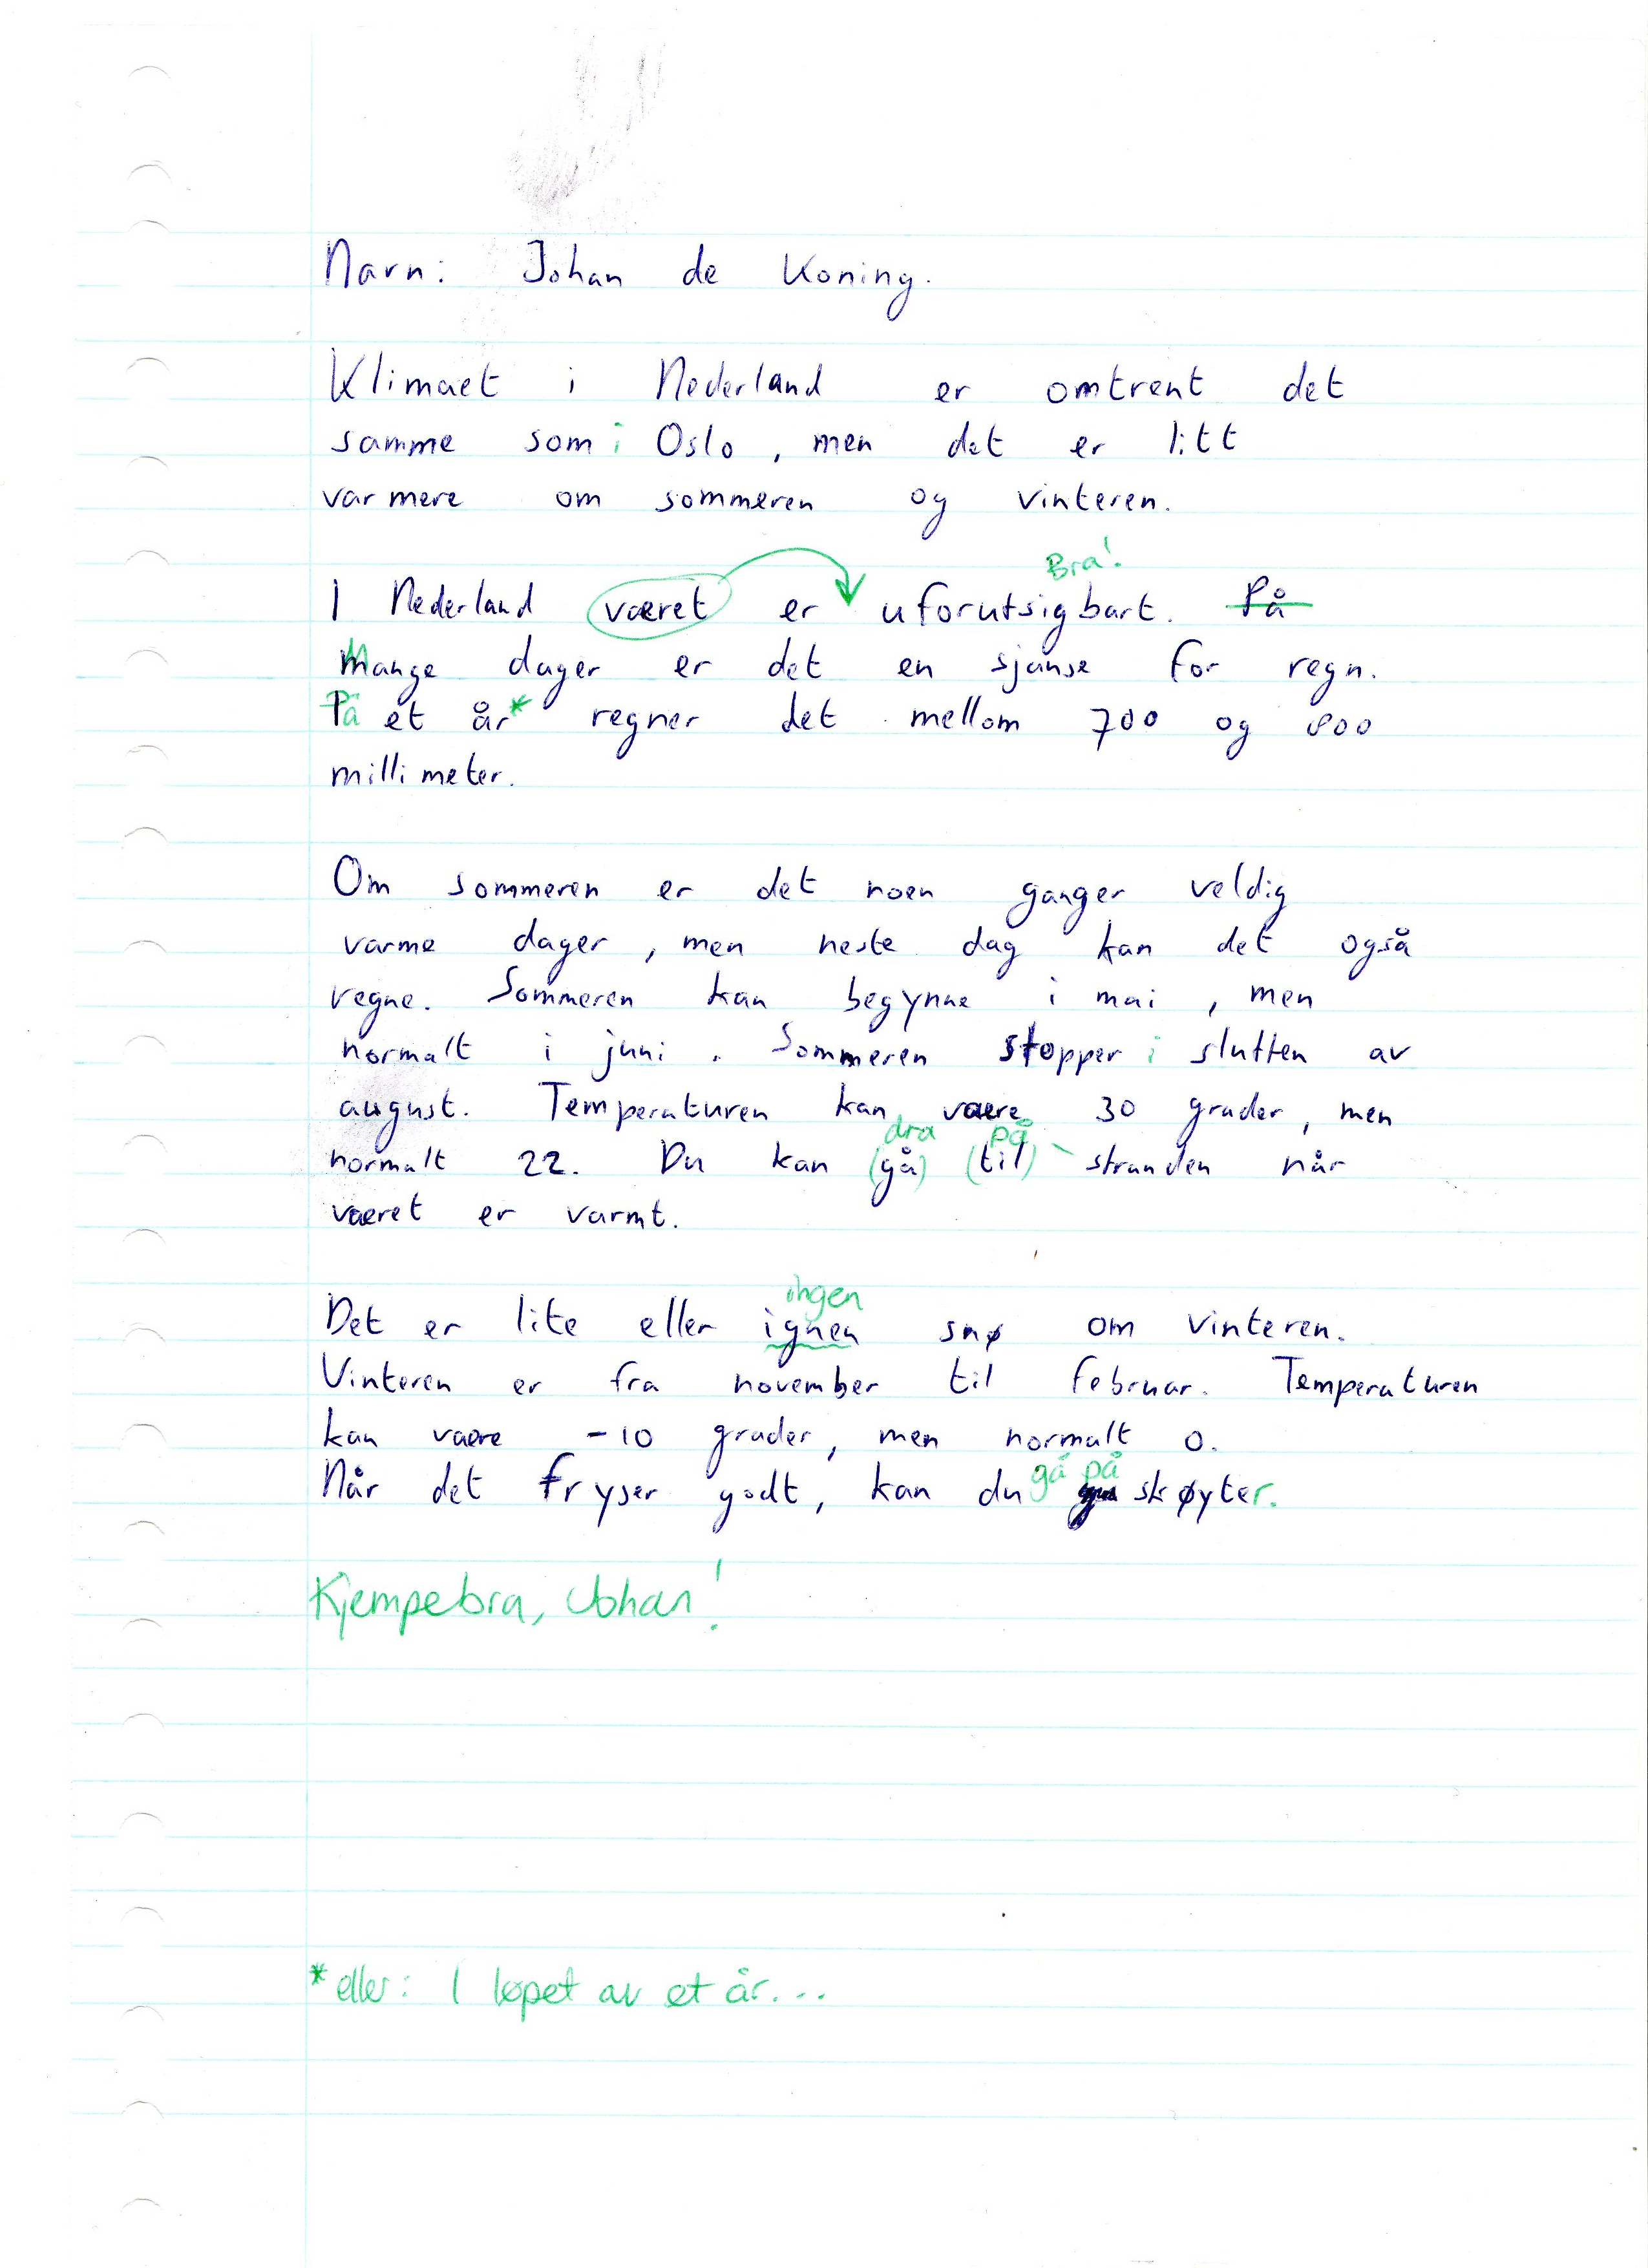 Navn: Johan de Koning.
Klimaet i Nederland er omtrent det
samme som i Oslo, men det er litt
varmere om sommeren og vinteren.
Bra!
I Nederland været er uforutsigbart. På
Mange dager er det en sjanse for regn.
På et år* regner det mellom 700 og 800
millimeter.
Om sommeren er det noen ganger veldig
varme dager, men neste dag kan det også
regne. Sommeren kan begynne i mai, men
normalt i juni. Sommeren stopper i slutten av
august. Temperaturen kan være 30 grader, men
dra på
normalt 22. Du kan (gå) (til) stranden når
været er varmt.
ingen
Det er lite eller ignen snø om vinteren.
Vinteren er fra november til februar. Temperaturen
kan være -10 grader, men normalt 0.
gå på
Når det fryser godt, kan du skøyter.
Kjempebra, Johan!
*eller: I løpet av et år...